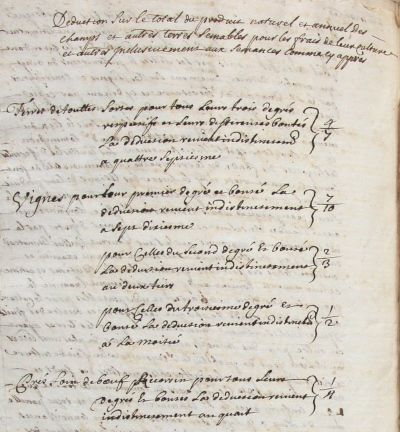 Deduction sur le total du produit naturel et annuel des
champs et autres terres semables pour les frais de leur culture
et autres inclusivement aux semances comme cy apres
Terres de touttes sortes pour tous leurs trois degrés
respectifs et leurs differentes bontés
La deduction revient indistinctem
a quattre septiesme
4/7
Vignes pour leur premier degré et bonté La
deduction revient indistinctement
a sept dixiesme
7/10
pour Celles du Second degré Et bonté
La deduction revient indistinctement
au deux tiers
2/3
pour Celles du troisiesme degré et
bonté La deduction revient indistinctem
a La moitié
1/2
Prés foin de boeuf pour tous Leurs
degrés Et bontés La deduction revient
indistinctement au quart
1/4